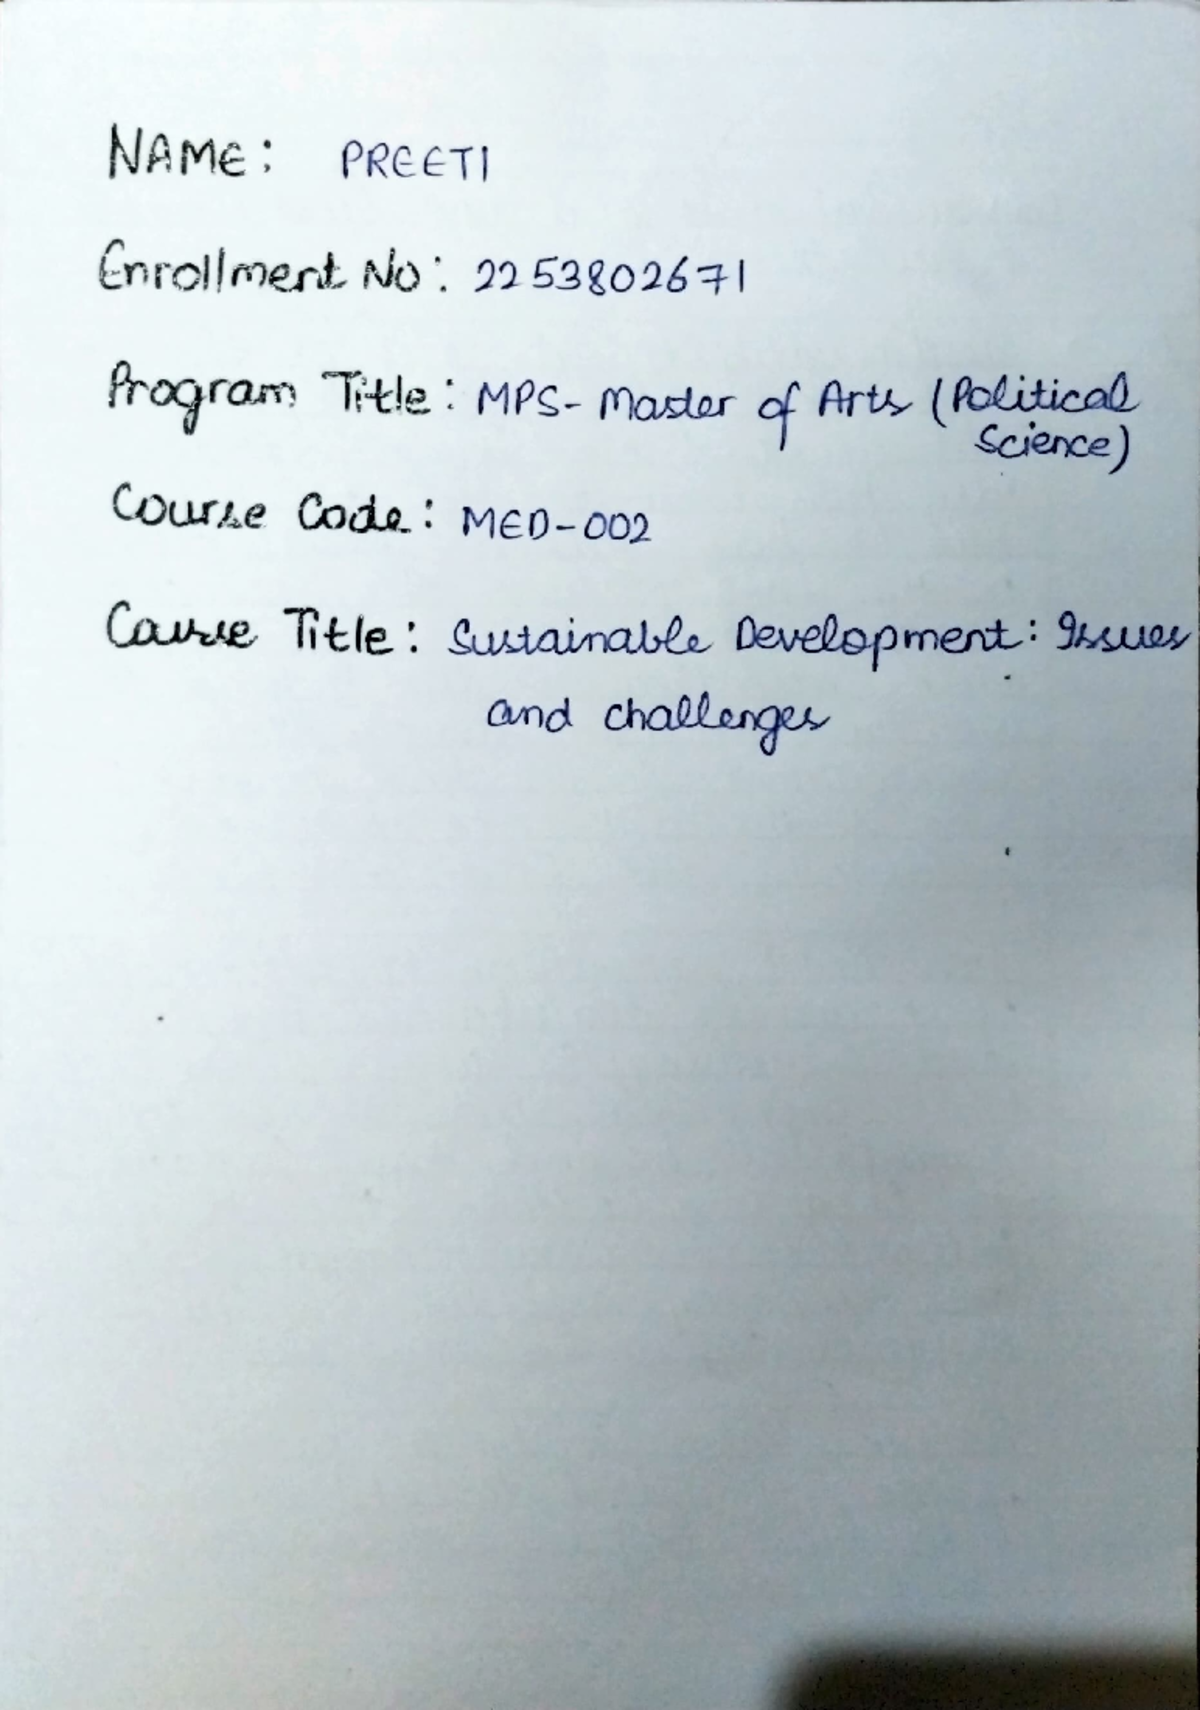 NAME: PREETI
Enrollment No: 2253802671
Program Title: MPS- Master of Arts (Political
Science)
Course Code: MED-002
Course Title: Sustainable Development: Issues
and challenges